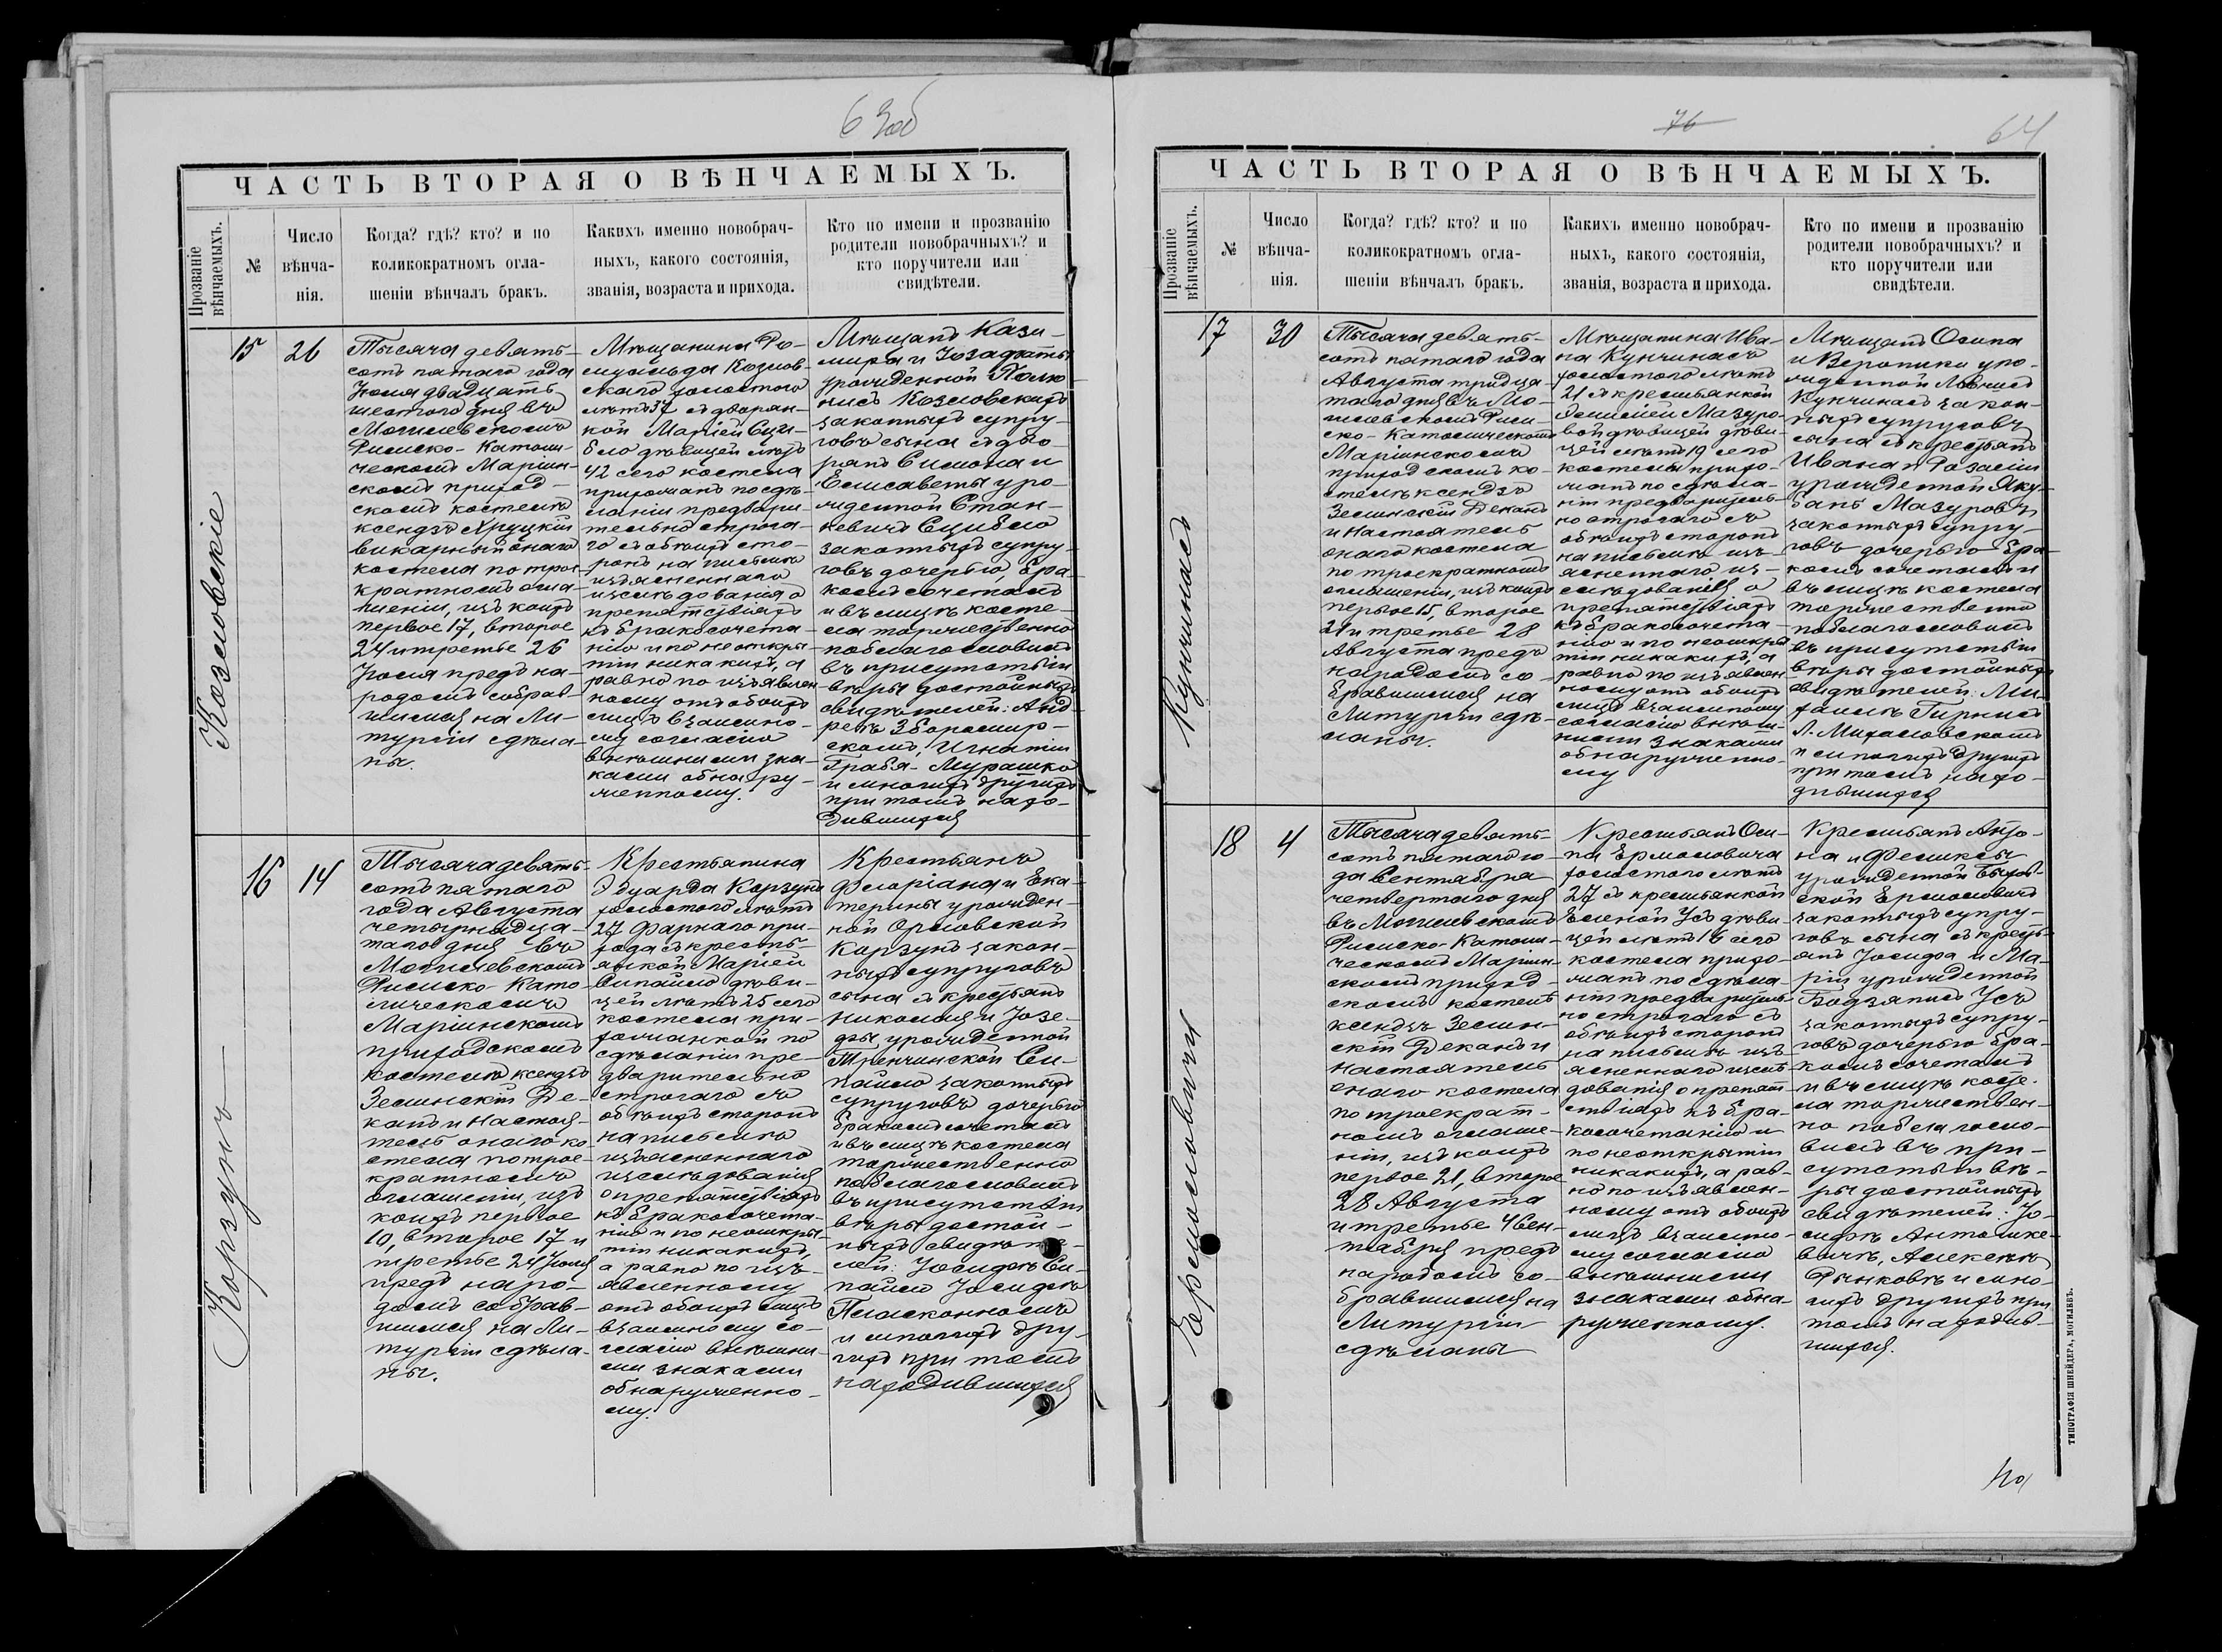 63об
ЧАСТЬ ВТОРАЯ О ВѢНЧАЕМЫХЪ.
Прозваніе вѣнчаемыхъ.
№
Число
вѣнча-
нія.
Когда? гдѣ? кто? и по
коликократномъ огла-
шеніи вѣнчалъ бракъ.
Какихъ именно новобрач-
ныхъ, какого состоянія,
званія, возраста и прихода.
Кто по имени и прозванію
родители новобрачныхъ? и
кто поручители или
свидѣтели.
Козловскіе
15
26
Тысяча девять-
сотъ пятаго года
Іюля двадцать
шестого дня въ
Могилевскомъ
Римско-Католи-
ческомъ Маріин-
скомъ приход-
скомъ костелѣ
ксендзъ Хруцкій
викарный онаго
костела по трое-
кратномъ огла-
шеніи, изъ коихъ
первое 17, второе
24 и третье 26
Іюля предъ на-
родомъ собрав-
шимся на Ли-
тургіи сдѣла-
ны.
Мѣщанина Ро-
муальда Козлов-
скаго холостого
лѣтъ 37 съ дворян-
кой Маріей Сци-
бло дѣвицей лѣтъ
42 сего костела
прихожанъ по сдѣ-
ланіи предвари-
тельно строга-
го съ обѣихъ сто-
ронъ на письмѣ
изъясненнаго
изслѣдованія о
препятствіяхъ
къ бракосочета-
нію и по неоткры-
тіи никакихъ, а
равно по изъявлен-
ному отъ обоихъ
лицъ взаимно-
му согласію
внѣшними зна-
ками обнару-
женному.
Мѣщанъ Кази-
мира и Іозафаты
урожденной Полю-
нисъ Козловскихъ
законныхъ супру-
говъ сына съ дво-
рянъ Симона и
Елисаветы уро-
жденной Стан-
кевичъ Сцибло
законныхъ супру-
говъ дочерью, бра-
комъ сочеталъ
и въ лицѣ косте-
ла торжественно
поблагословилъ
въ присутствіи
вѣры достойныхъ
свидѣтелей: Анд-
реѣ Зборомир-
скомъ, Игнатіи
Грабя-Мурашко
и многихъ другихъ
при томъ нахо-
дившихся
Корзунъ
16
14
Тысяча девять-
сотъ пятаго
года Августа
четырнадца-
таго дня въ
Могилевскомъ
Римско-Като-
лическомъ
Маріинскомъ
приходскомъ
костелѣ ксендзъ
Зелинскій Де-
канъ и Настоя-
тель онаго ко-
стела по трое-
кратномъ
оглашеніи, изъ
коихъ первое
10, второе 17 и
третье 24 Іюля
предъ наро-
домъ собрав-
шимся на Ли-
тургіи сдѣла-
ны.
Крестьянина
Эдуарда Корзуна
холостого лѣтъ
27 Фарнаго при-
хода съ кресть-
янкой Маріей
Сипайло дѣви-
цей лѣтъ 25 сего
костела при-
хожанкой по
сдѣланіи пре-
дварительно
строгаго съ
обѣихъ сторонъ
на письмѣ
изъясненнаго
изслѣдованія
о препятствіяхъ
къ бракосочета-
нію и по неоткры-
тіи никакихъ,
а равно по изъ-
явленному
отъ обоихъ лицъ
взаимному со-
гласію внѣшни-
ми знаками
обнаруженно-
му.
Крестьянъ
Флоріана и Ека-
терины урожден-
ной Орловской
Корзунъ закон-
ныхъ супруговъ
сына съ крестьянъ
Николая и Іозе-
фы урожденной
Тренчинской Си-
пайло законныхъ
супруговъ дочерью
бракомъ сочеталъ
и въ лицѣ костела
торжественно
поблагословилъ
въ присутствіи
вѣры достой-
ныхъ свидѣте-
лей: Іосифѣ Си-
пайло Іосифѣ
и многихъ дру-
гихъ при томъ
находившихся
76
64
ЧАСТЬ ВТОРАЯ О ВѢНЧАЕМЫХЪ.
Прозваніе вѣнчаемыхъ.
№
Число
вѣнча-
нія.
Когда? гдѣ? кто? и по
коликократномъ огла-
шеніи вѣнчалъ бракъ.
Какихъ именно новобрач-
ныхъ, какого состоянія,
званія, возраста и прихода.
Кто по имени и прозванію
родители новобрачныхъ? и
кто поручители или
свидѣтели.
Кунчинасъ
17
30
Тысяча девять-
сотъ пятаго года
Августа тридца-
таго дня въ Мо-
гилевскомъ Рим-
ско-Католическомъ
Маріинскомъ
приходскомъ ко-
стелѣ ксендзъ
Зелинскій Деканъ
и Настоятель
онаго костела
по троекратномъ
оглашеніи, изъ коихъ
первое 15, второе
21 и третье 28
Августа предъ
народомъ со-
бравшимся на
Литургіи сдѣ-
ланы.
Мѣщанина Ива-
на Кунчинасъ
холостого лѣтъ
21 съ крестьянкой
Эмиліей Мазуро-
вой дѣвицей дѣви-
цей лѣтъ 19 сего
костела прихо-
жанъ по сдѣла-
ніи предваритель-
но строгаго съ
обѣихъ сторонъ
на письмѣ изъ-
ясненнаго из-
слѣдованія о
препятствіяхъ
къ бракосочета-
нію и по неоткры-
тіи никакихъ, а
равно по изъявлен-
ному отъ обоихъ
лицъ взаимному
согласію внѣш-
ними знаками
обнаруженно-
му
Мѣщанъ Осипа
и Вероники уро-
жденной
Кунчинасъ закон-
ныхъ супруговъ
сына съ крестьянъ
Ивана и Розаліи
урожденной Яку-
банъ Мазуровъ
законныхъ супру-
говъ дочерью бра-
комъ сочеталъ и
въ лицѣ костела
торжественно
поблагословилъ
въ присутствіи
вѣры достойныхъ
свидѣтелей: Ми-
хаилѣ
Л. Михаловскомъ
и многихъ другихъ
при томъ нахо-
дившихся
Ермоловичи
18
4
Тысяча девять-
сотъ пятаго го-
да Сентября
четвертаго дня
въ Могилевскомъ
Римско-Католи-
ческомъ Маріин-
скомъ приход-
скомъ костелѣ
ксендзъ Зелин-
скій Деканъ и
Настоятель
онаго костела
по троекрат-
номъ оглаше-
ніи, изъ коихъ
первое 21, второе
28 Августа
и третье 4 Сен-
тября предъ
народомъ со-
бравшимся на
Литургіи
сдѣланы
Крестьянъ Оси-
па Ермоловича
холостого лѣтъ
27 съ крестьянкой
Еленой Усъ дѣви-
цей лѣтъ 18 сего
костела прихо-
жанъ по сдѣла-
ніи предваритель-
но строгаго съ
обѣихъ сторонъ
на письмѣ изъ-
ясненнаго изслѣ-
дованія о препят-
ствіяхъ къ бра-
косочетанію и
по неоткрытіи
никакихъ, а рав-
но по изъявлен-
ному отъ обоихъ
лицъ взаимно-
му согласію
внѣшними
знаками обна-
руженному.
Крестьянъ Анто-
на и Феликсы
урожденной
Ермоловичъ
законныхъ супру-
говъ сына съ кресть-
янъ Іосифа и Ма-
ріи урожденной
Усъ
законныхъ супру-
говъ дочерью бра-
комъ сочеталъ
и въ лицѣ косте-
ла торжествен-
но поблагосло-
вилъ въ при-
сутствіи вѣ-
ры достойныхъ
свидѣтелей: Іо-
сифѣ Антошке-
вичѣ, Алексѣѣ
Рынковѣ и мно-
гихъ другихъ при
томъ находив-
шихся.
ТИПОГРАФІЯ ШНЕЙДЕРА, МОГИЛЕВЪ.